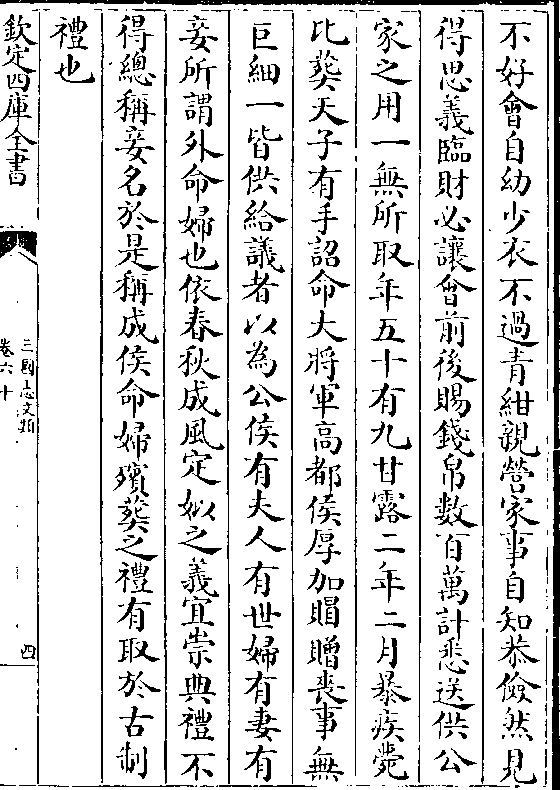 不好會自幼少衣不過青紺親營家事自知恭儉然見
得思義臨財必讓會前後賜錢帛數百萬計悉送供公
家之用一無所取年五十有九甘露二年二月暴疾薨
比葬天子有手詔命大將軍高都侯厚加賵贈喪事無
巨細一皆供給議者以為公侯有夫人有世婦有妻有
妾所謂外命婦也依春秋成風定姒之義宜崇典禮不
得總稱妾名於是稱成侯命婦殯葬之禮有取於古制
禮也
欽定四庫全書
三國志文類
卷六十
四